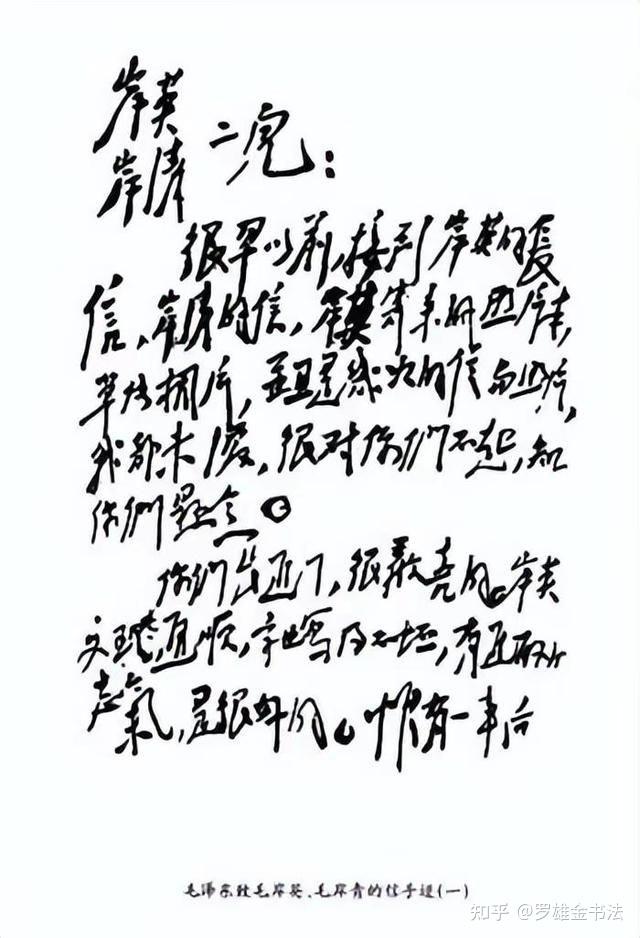 岸英
岸清 二兒：
很早以前，接到岸英的長
信，岸清的信，岸英寄来的照片本，
单张相片，並且是几次的信与照片，
我都未復，很对你們不起，知
你們懸念。
你們长进了，很歡喜的。岸英
文理通順，字也写得不坏，有进取的
志氣，是很好的。惟有一事向
毛泽东致毛岸英、毛岸青的信手迹(一)
知乎 @罗雄金书法